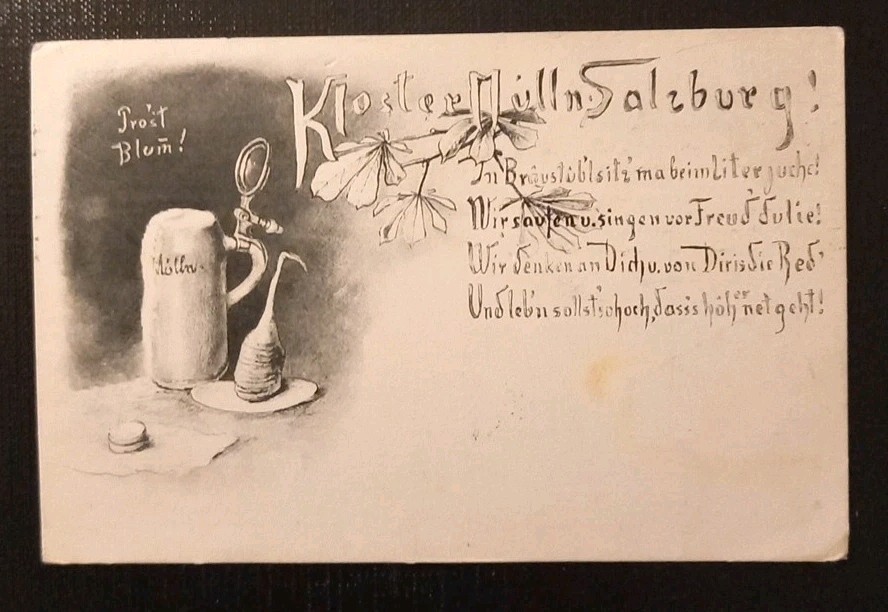 Prost
Blum̄!
Kloster Mülln-Salzburg!
In Bräustüb'l sitz' ma beim Liter juche!
Wir saufen u. singen vor Freud' dulie!
Wir denken an Dich u. von Dir is die Red'
Und leb'n sollst' hoch, dass's höh'er net geht!
Mülln.